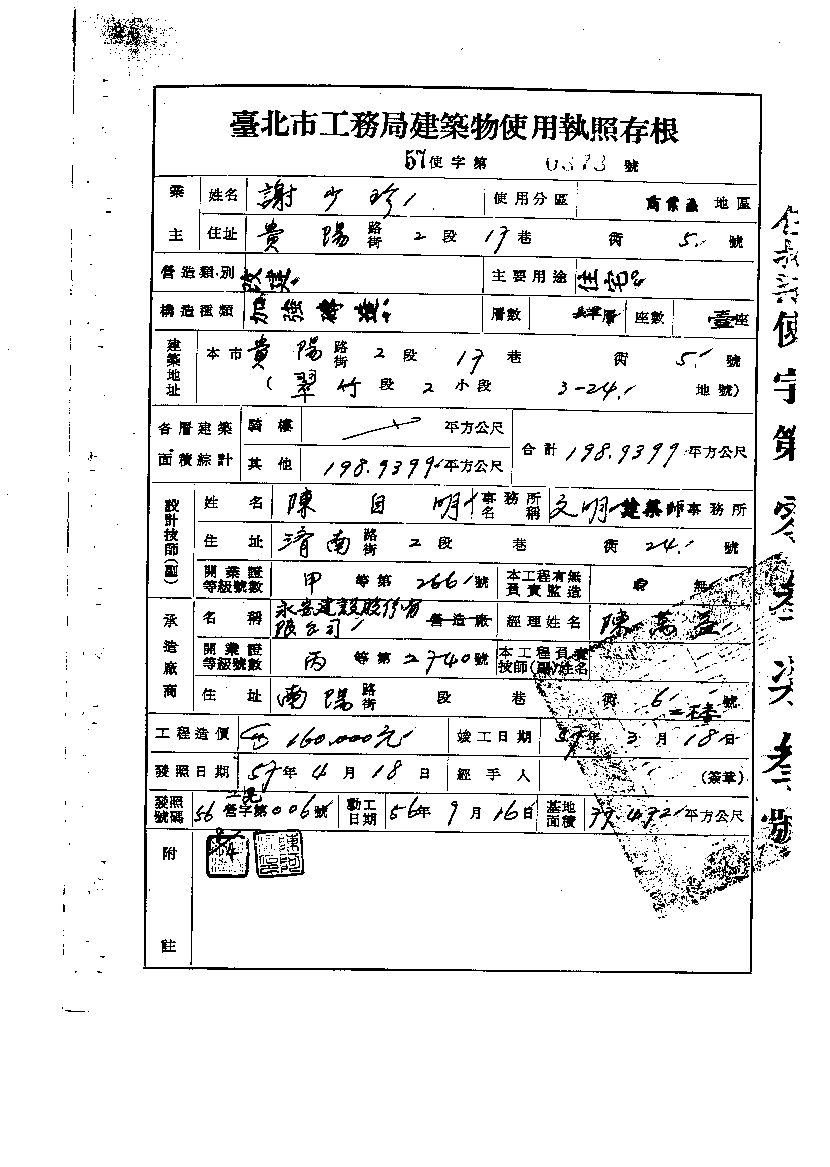 臺北市工務局建築物使用執照存根
57使字第 0373 號
業主 姓名 謝少珍 使用分區 商業區 地區
住址 貴陽 路街 2 段 17 巷 衖 5 號
營造類別 改建 主要用途 住宅
構造種類 加強磚造 層數 層 座數 壹座
建築地址 本市 貴陽 路街 2 段 17 巷 衖 5 號
( 翠竹 段 2 小段 3-24 地號)
各層建築面積綜計 騎樓 平方公尺 合計 198.9399 平方公尺
其他 198.9399 平方公尺
設計技師(副) 姓名 陳 明 事務所名稱 文明 建築師事務所
住址 濟南 路街 2 段 巷 衖 24 號
開業證等級號數 甲 等第 2661 號 本工程有無負責監造 無
承造廠商 名稱 永安建設股份有限公司 營造廠 經理姓名 陳萬益
開業證等級號數 丙 等第 2740 號 本工程負責技師(副)姓名
住址 南陽 路街 段 巷 衖 6 號 二樓
工程造價 160,000元 竣工日期 57年 3 月 18 日
發照日期 57年 4 月 18 日 經手人 (簽章)
發照號碼 56 營字第006號 動工日期 56年 9 月 16日 基地面積 77.472 平方公尺
附註
使字第零叁柒叁號